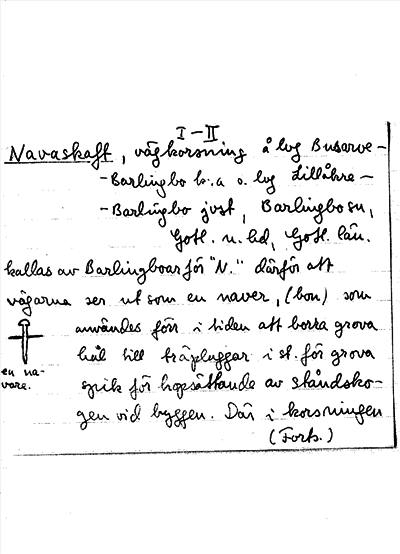 I-II
Navaskaft, vägkorsning å lvg Busarve-
-Barlingbo k:a o. lvg Lillåkre-
-Barlingbo just, Barlingbo sn,
Gotl. n. hd, Gotl. län.
kallas av Barlingboar för "N." därför att
vägarna ser ut som en naver, (borr) som
användes förr i tiden att borra grova
hål till träpluggar i st. för grova
spik för hopsättande av ståndsko-
en na-
vare.
gen vid byggen. Där i korsningen
(Forts.)